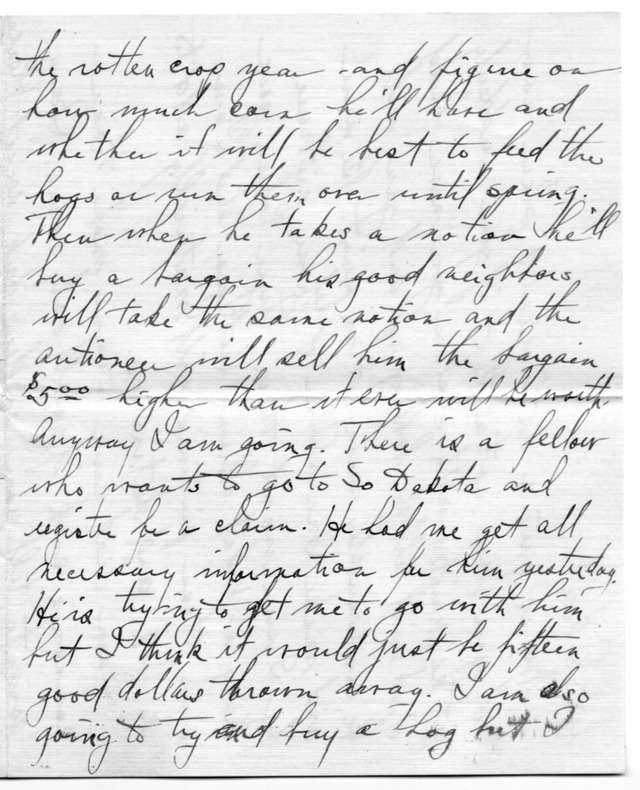 the rotten crop year - and figure on
how much corn he'll have and
whether it will be best to feed the
hogs or run them over until spring.
Then when he takes a notion he'll
buy a bargain his good neighbors
will take the same notion and the
autioneer will sell him the bargain
$5.00 higher than it ever will be worth.
Anyway I am going. There is a fellow
who wants to go to So Dakota and
register for a claim. He had me get all
necessary information for him yesterday.
He is trying to get me to go with him
but I think it would just be fifteen
good dollars thrown away. I am also
going to try and buy a hog but I